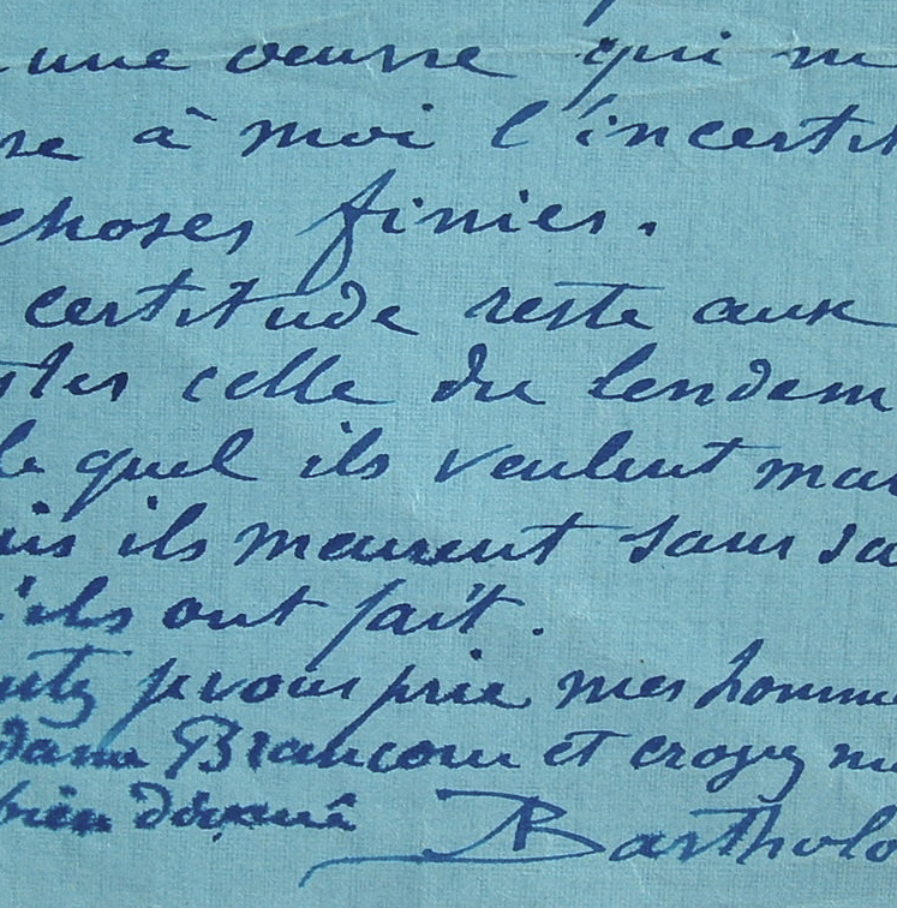 une œuvre qui m
re à moi l'incertit
choses finies.
certitude reste aux
stes celle du lendem
le quel ils veulent mai
ais ils meurent sans sa
'ils ont fait.
entez je vous prie mes homma
dame Brancour et croyez m
bien dévoué Bartholo